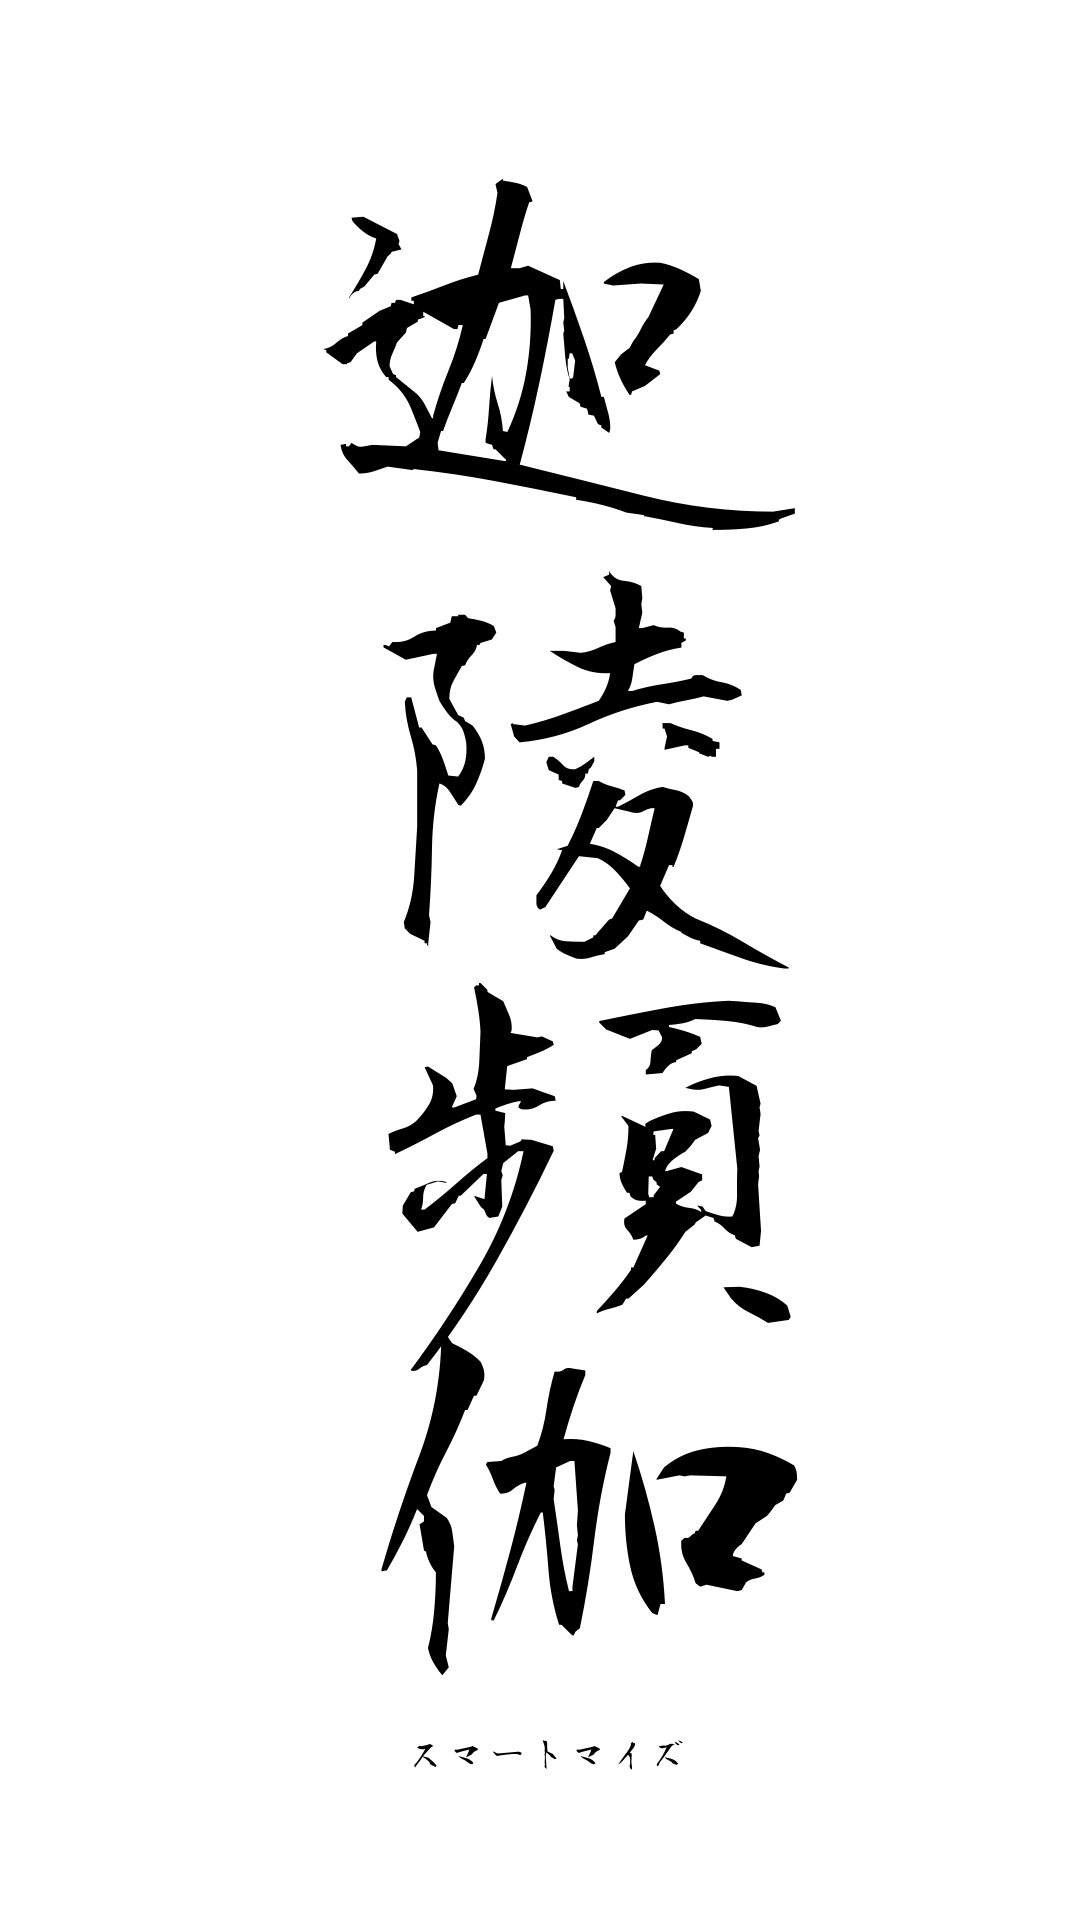 迦陵頻伽
スマートマイズ